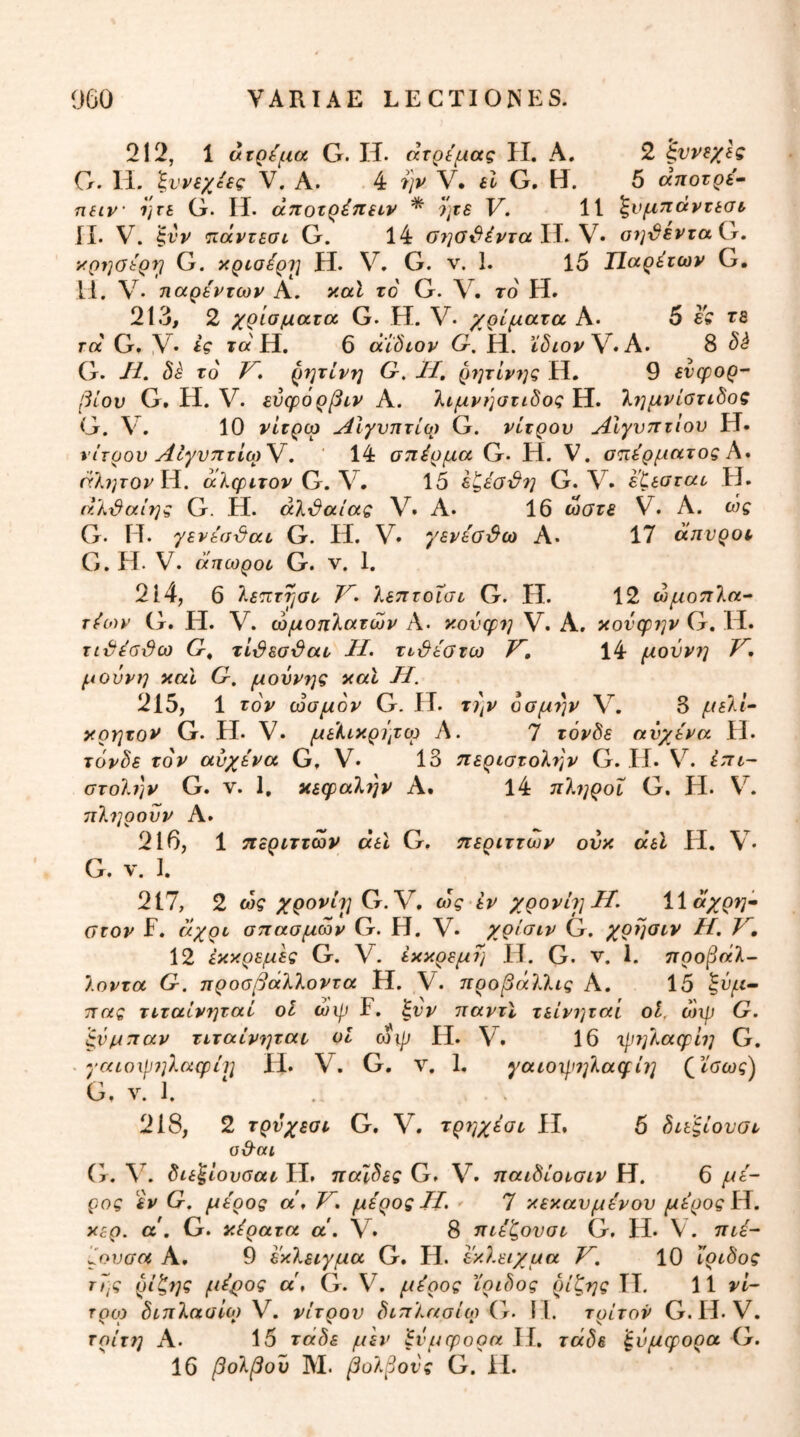 960 VARIAE LECTIONES.
212, 1 ἀτρέμα G. H. ἀτρέμας H. A. 2 ξυνεχὲς
G. H. ξυνεχέες V. A. 4 ἢν V. εἰ G. H. 5 ἀποτρέ-
πειν· ἤτε G. H. ἀποτρέπειν * ἤτε V. 11 ξυμπάντεσι
H. V. ξὺν πάντεσι G. 14 σησθέντα H. V. σηθέντα G.
κρησέρῃ G. κρισέρῃ H. V. G. v. 1. 15 Παρέτων G.
H. V. παρέντων A. καὶ τὸ G. V. τὸ H.
213, 2 χρίσματα G. H. V. χρίματα A. 5 ἔς τε
τὰ G. V. ἐς τὰ H. 6 ἀΐδιον G. H. ἴδιον V. A. 8 δὲ
G. H. δὲ τὸ V. ῥητίνη G. H. ῥητίνης H. 9 εὐφορ-
βίου G. H. V. εὐφόρβιν A. λιμνήστιδος H. λημνίστιδος
G. V. 10 νίτρῳ Αἰγυπτίῳ G. νίτρου Αἰγυπτίου H.
νίτρου Αἰγυπτίῳ V. 14 σπέρμα G. H. V. σπέρματος A.
ἄλητον H. ἄλφιτον G. V. 15 ἐξέσθη G. V. ἔξεσται H.
ἀλθαίης G. H. ἀλθαίας V. A. 16 ὥστε V. A. ὡς
G. H. γενέσθαι G. H. V. γενέσθω A. 17 ἄπυροι
G. H. V. ἄπωροι G. v. 1.
214, 6 λεπτῇσι V. λεπτοῖσι G. H. 12 ὠμοπλα-
τέων G. H. V. ὠμοπλατῶν A. κούφη V. A. κούφην G. H.
τιθέσθω G. τίθεσθαι H. τιθέστω V. 14 μούνη V.
μούνη καὶ G. μούνης καὶ H.
215, 1 τὸν ὠσμὸν G. H. τὴν ὀσμὴν V. 3 μελί-
κρητον G. H. V. μελικρήτῳ A. 7 τόνδε αὐχένα H.
τόνδε τὸν αὐχένα G. V. 13 περιστολὴν G. H. V. ἐπι-
στολὴν G. v. 1. κεφαλὴν A. 14 πληροῖ G. H. V.
πληροῦν A.
216, 1 περιττῶν ἀεὶ G. περιττῶν οὐκ ἀεὶ H. V.
G. v. 1.
217, 2 ὡς χρονίῃ G. V. ὡς ἐν χρονίῃ H. 11 ἄχρη-
στον F. ἄχρι σπασμῶν G. H. V. χρίσιν G. χρῆσιν H. V.
12 ἐκκρεμὲς G. V. ἐκκρεμῆ H. G. v. 1. προβάλ-
λοντα G. προσβάλλοντα H. V. προβάλλις A. 15 ξύμ-
πας τιταίνηταί οἱ ὤψ F. ξὺν παντὶ τείνηταί οἱ, ὤψ G.
ξύμπαν τιταίνηται οἱ ὤψ H. V. 16 ψηλαφίη G.
γαιοψηλαφίῃ H. V. G. v. 1. γαιοψηλαφίη (ἴσως)
G. v. 1.
218, 2 τρύχεσι G. V. τρηχέσι H. 5 διεξίουσι
σθαι
G. V. διεξίουσαι H. παῖδες G. V. παιδίοισιν H. 6 μέ-
ρος ἓν G. μέρος α΄. V. μέρος H. 7 κεκαυμένου μέρος H.
κερ. α΄. G. κέρατα α΄. V. 8 πιέζουσι G. H. V. πιέ-
ζουσα A. 9 ἔκλειγμα G. H. ἔκλειχμα V. 10 ἴριδος
τῆς ῥίζης μέρος α΄. G. V. μέρος ἴριδος ῥίζης H. 11 νί-
τρῳ διπλασίῳ V. νίτρου διπλασίῳ G. H. τρίτον G. H. V.
τρίτη A. 15 τάδε μὲν ξύμφορα H. τάδε ξύμφορα G.
16 βολβοῦ M. βολβοὺς G. H.